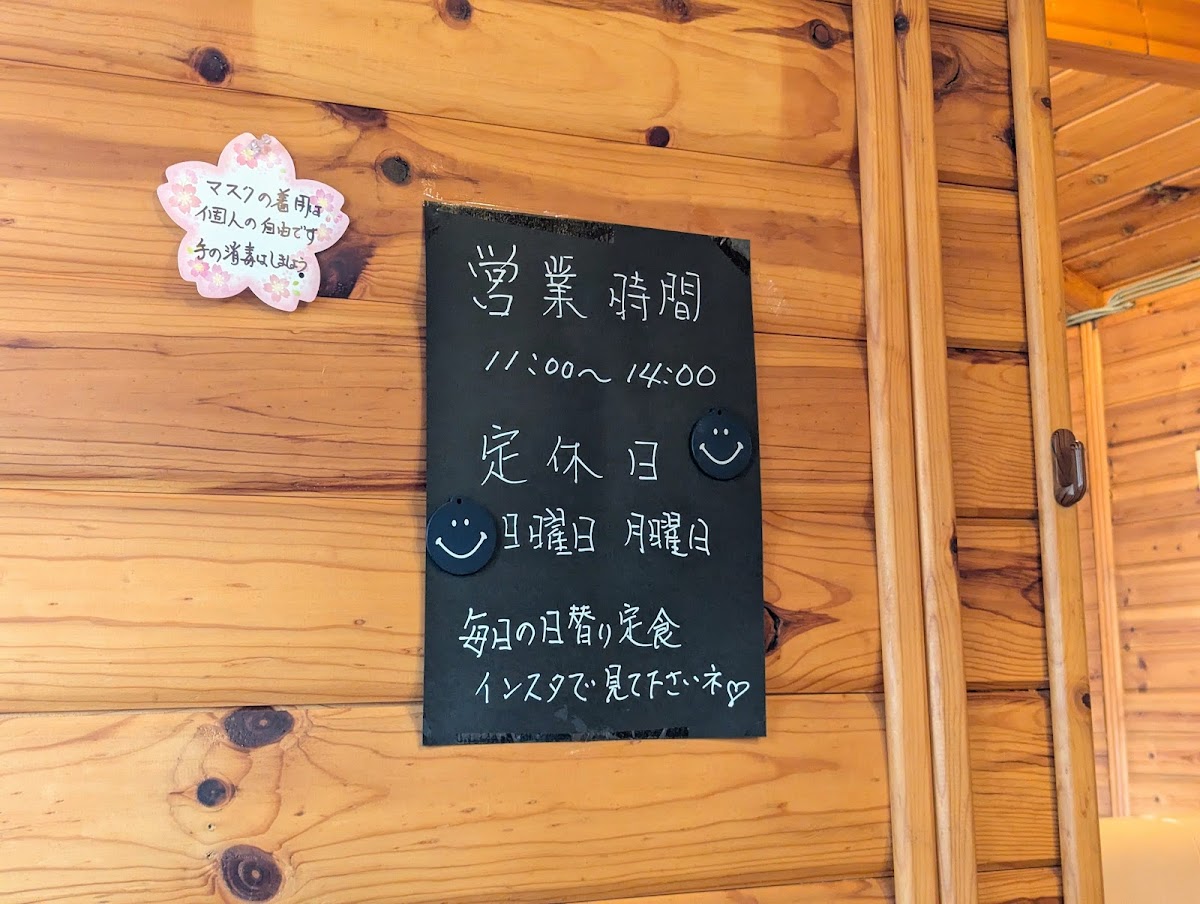 マスクの着用は
個人の自由です
手の消毒はしましょう
営業時間
11:00～14:00
定休日
日曜日 月曜日
毎日の日替り定食
インスタで見て下さいネ♡